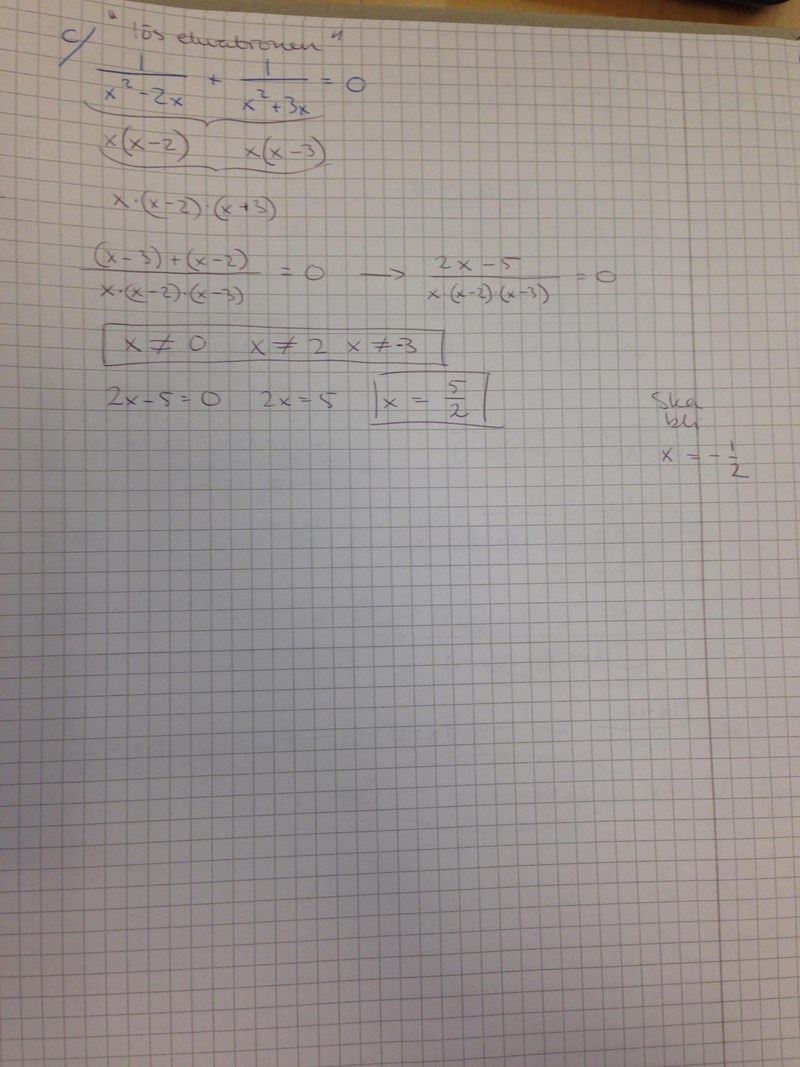 c/ "lös ekvationen"
1/(x² - 2x) + 1/(x² + 3x) = 0
x(x-2) x(x-3)
x·(x-2)·(x+3)
((x-3)+(x-2))/(x·(x-2)·(x-3)) = 0 → (2x-5)/(x·(x-2)·(x-3)) = 0
x ≠ 0 x ≠ 2 x ≠ -3
2x-5=0 2x=5 x = 5/2
Ska
bli
x = -1/2